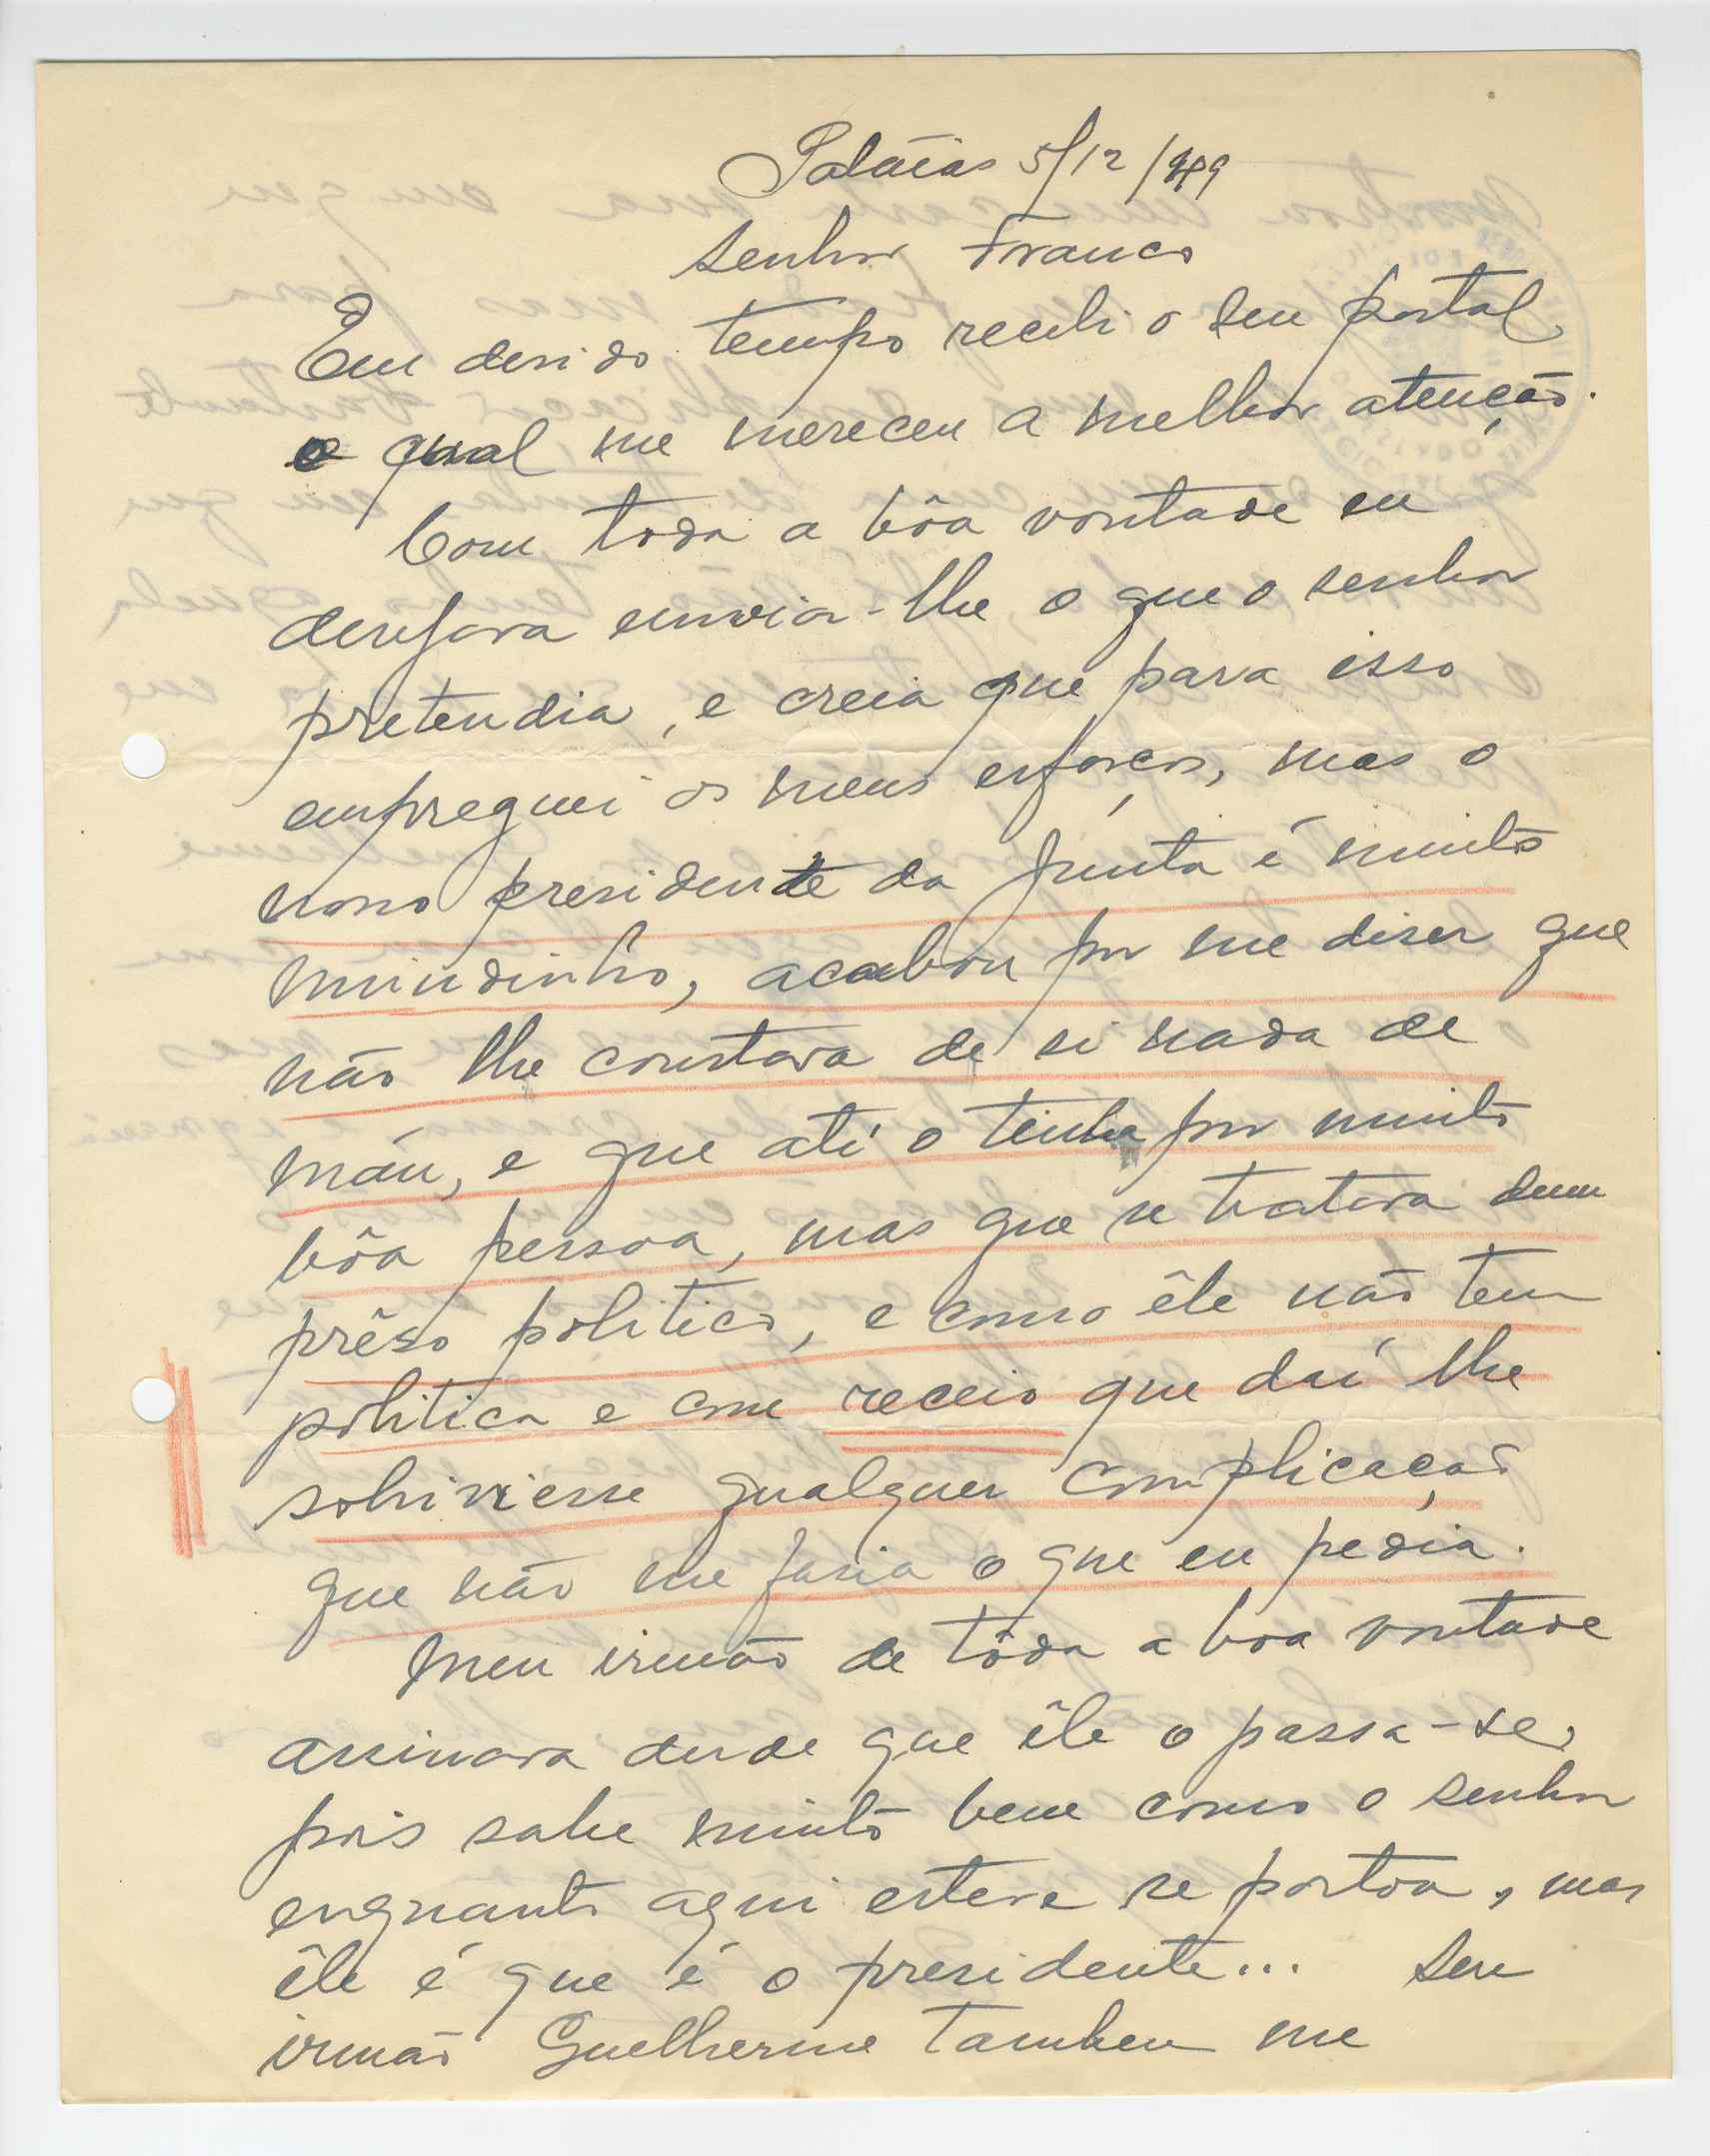 Pataias 5/12/949
Senhor Franco
Em devido tempo recebi o seu postal
o qual me mereceu a melhor atenção.
Com toda a bôa vontade eu
desejava enviar-lhe o que o senhor
pretendia, e creia que para isso
empreguei os meus esforços, mas o
nosso presidente da Junta é muito
miudinho, acabou por me diser que
não lhe constava de si nada de
máu, e que até o tinha por muito
bôa pessoa, mas que se tratava dum
prêso politico, e como êle não tem
politica e com receio que daí lhe
sobriviesse qualquer complicação
que não me fasia o que eu pedia.
Meu irmão de tôda a boa vontade
assinava desde que êle o passa-se,
pois sabe muito bem como o senhor
enquanto aqui esteve se portou, mas
êle é que é o presidente... Seu
irmão Guelherme tambem me